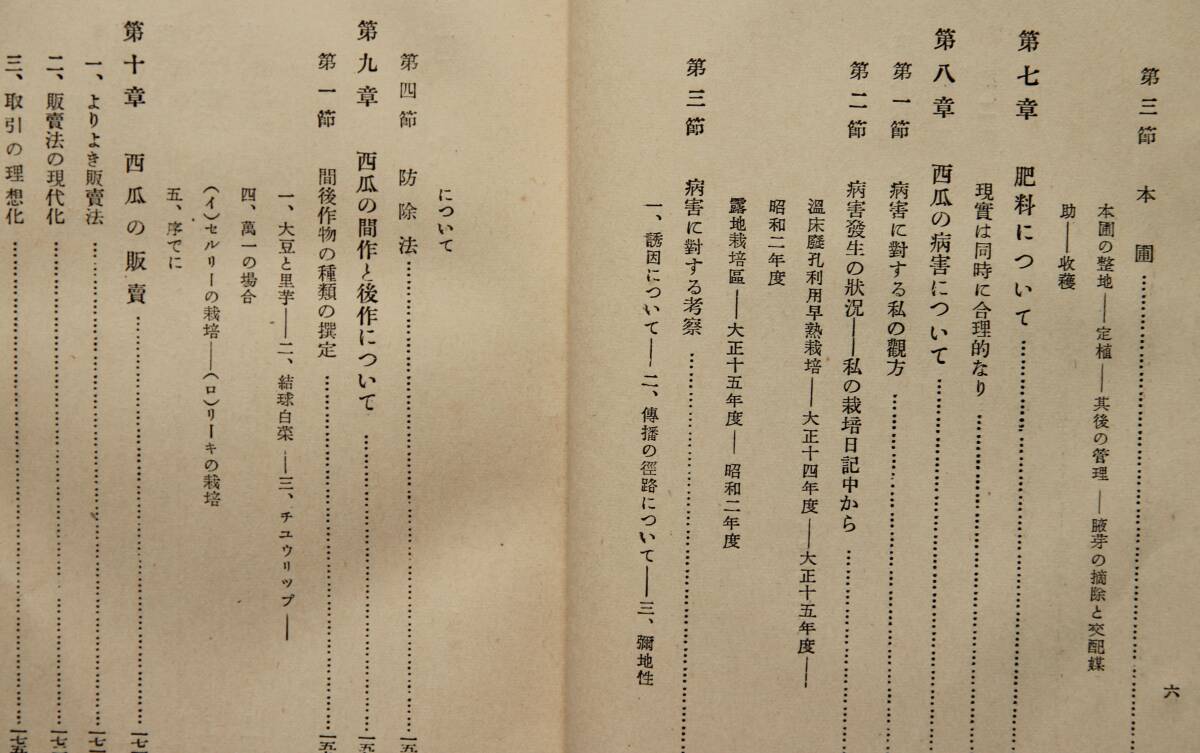 第三節 本圃……
本圃の整地——定植——其後の管理——腋芽の摘除と交配媒
助——收穫
第七章 肥料について……
現實は同時に合理的なり……
第八章 西瓜の病害について……
第一節 病害に對する私の觀方……
第二節 病害發生の狀況——私の栽培日記中から……
溫床廢孔利用早熟栽培——大正十四年度——大正十五年度——
昭和二年度
露地栽培區——大正十五年度——昭和二年度
第三節 病害に對する考察……
一、誘因について——二、傳播の徑路について——三、彌地性
六
について
第四節 防除法……一五
第九章 西瓜の間作と後作について……一五
第一節 間後作物の種類の撰定……一五
一、大豆と里芋——二、結球白菜——三、チユウリツプ——
四、萬一の場合
(イ)セルリーの栽培——(ロ)リーキの栽培
五、序でに
第十章 西瓜の販賣……一七
一、よりよき販賣法……一七
二、販賣法の現代化……一七
三、取引の理想化……一七